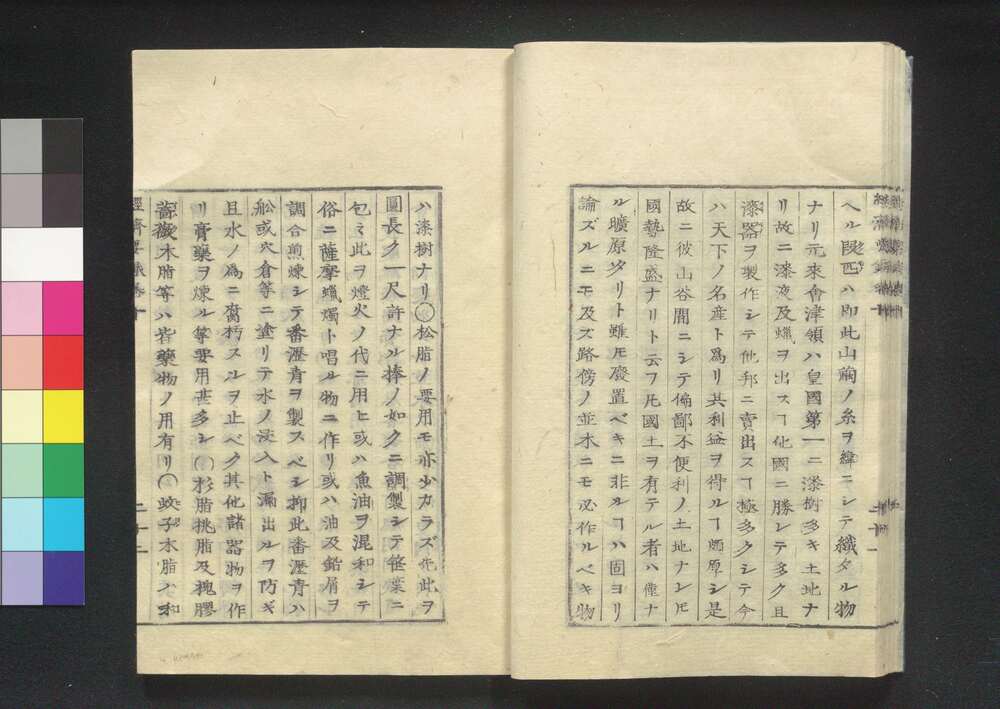 ヘル段匹ハ即此山繭ノ糸ヲ緯ニシテ織タル物
ナリ元來會津領ハ皇國第一ニ漆樹多キ土地ナ
リ故ニ漆液及蠟ヲ出スヿ他國ニ勝レテ多ク且
漆器ヲ製作シテ他邦ニ賣出スヿ極多クシテ今
ハ天下ノ名産ト爲リ其利益ヲ得ルヿ頗厚シ是
故ニ彼山谷間ニシテ偏鄙不便利ノ土地ナレ𪜈
國勢隆盛ナリト云フ凡國土ヲ有テル者ハ僅ナ
ル曠原タリト雖モ廢置ベキニ非ルヿハ固ヨリ
論ズルニモ及ズ路傍ノ並木ニモ必作ルベキ物
ハ漆樹ナリ〇松脂ノ要用モ亦少カラズ先此ヲ
圓長ク一尺許ナル捧ノ如クニ調製シテ笹葉ニ
包ミ此ヲ燈火ノ代ニ用ヒ或ハ魚油ヲ混和シテ
俗ニ薩摩蠟燭ト唱ル物ニ作リ或ハ油及鋸屑ヲ
調合煎煉シテ番瀝青ヲ製スベシ抑此番瀝青ハ
舩或穴倉等ニ塗リテ水ノ浸入ト漏出ルヲ防ギ
且水ノ爲ニ腐朽スルヲ止ベク其他諸器物ヲ作
リ膏藥ヲ煉ル等要用甚多シ〇杉脂桃脂及槐膠
木脂等ハ皆藥物ノ用有リ〇蚊子木脂ハ和
經濟要録巻十
二十三